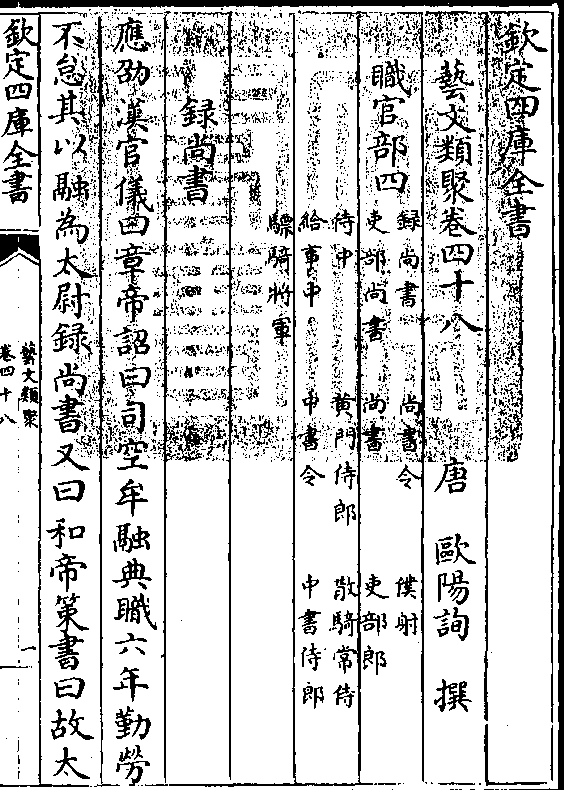 欽定四庫全書
藝文類聚卷四十八
唐 歐陽詢 撰
職官部四
録尚書 尚書令 僕射
吏部尚書 尚書 吏部郎
侍中 黄門侍郎 散騎常侍
給事中 中書令 中書侍郎
驃騎將軍
録尚書
應劭漢官儀曰章帝詔曰司空牟融典職六年勤勞
不怠其以融為太尉録尚書又曰和帝策書曰故太
欽定四庫全書
藝文類聚
卷四十八
一